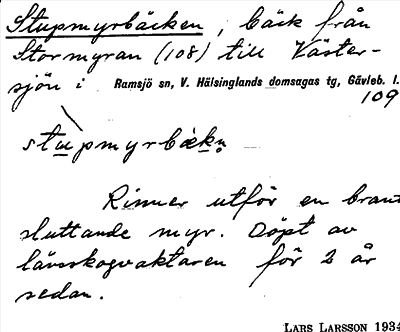 Stupmyrbäcken, bäck från
Stormyran (108) till Väster-
sjön i Ramsjö sn, V. Hälsinglands domsagas tg, Gävleb. l.
109
stupmyrbækn
Rinner utför en brant
sluttande myr. Döpt av
länsskogvaktaren för 2 år
sedan.
LARS LARSSON 1934